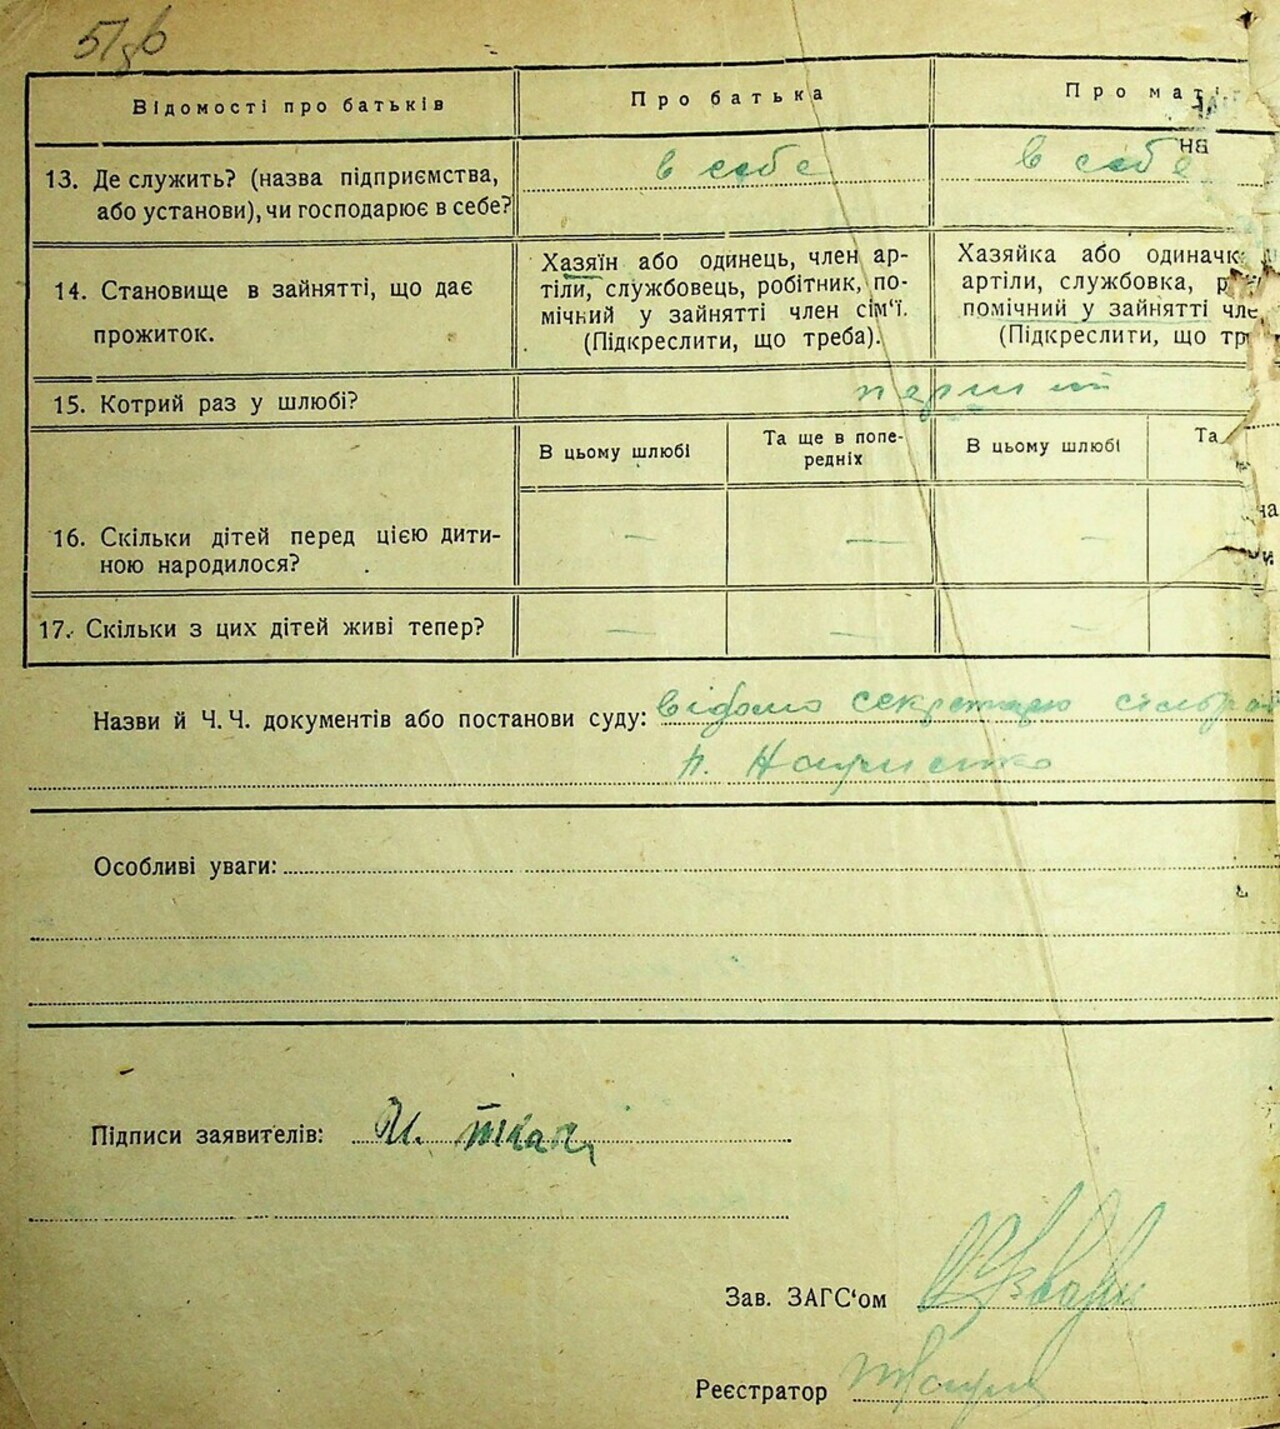 Відомості про батьків
Про батька
Про маті
13. Де служить? (назва підприємства,
або установи), чи господарює в себе?
в себе
в себе
на
14. Становище в зайнятті, що дає
прожиток.
Хазяїн або одинець, член ар-
тіли, службовець, робітник, по-
мічний у зайнятті член сім‘ї.
(Підкреслити, що треба).
Хазяйка або одиначк
артіли, службовка, р
помічний у зайнятті чле
(Підкреслити, що тр
15. Котрий раз у шлюбі?
перший
В цьому шлюбі
Та ще в попе-
редніх
В цьому шлюбі
Та
16. Скільки дітей перед цією дити-
ною народилося?
— — —
17. Скільки з цих дітей живі тепер?
— — —
Назви й Ч. Ч. документів або постанови суду: відомо секретарю сільра
Особливі уваги:
Підписи заявителів: И. Ткач
Зав. ЗАГС‘ом
Реєстратор